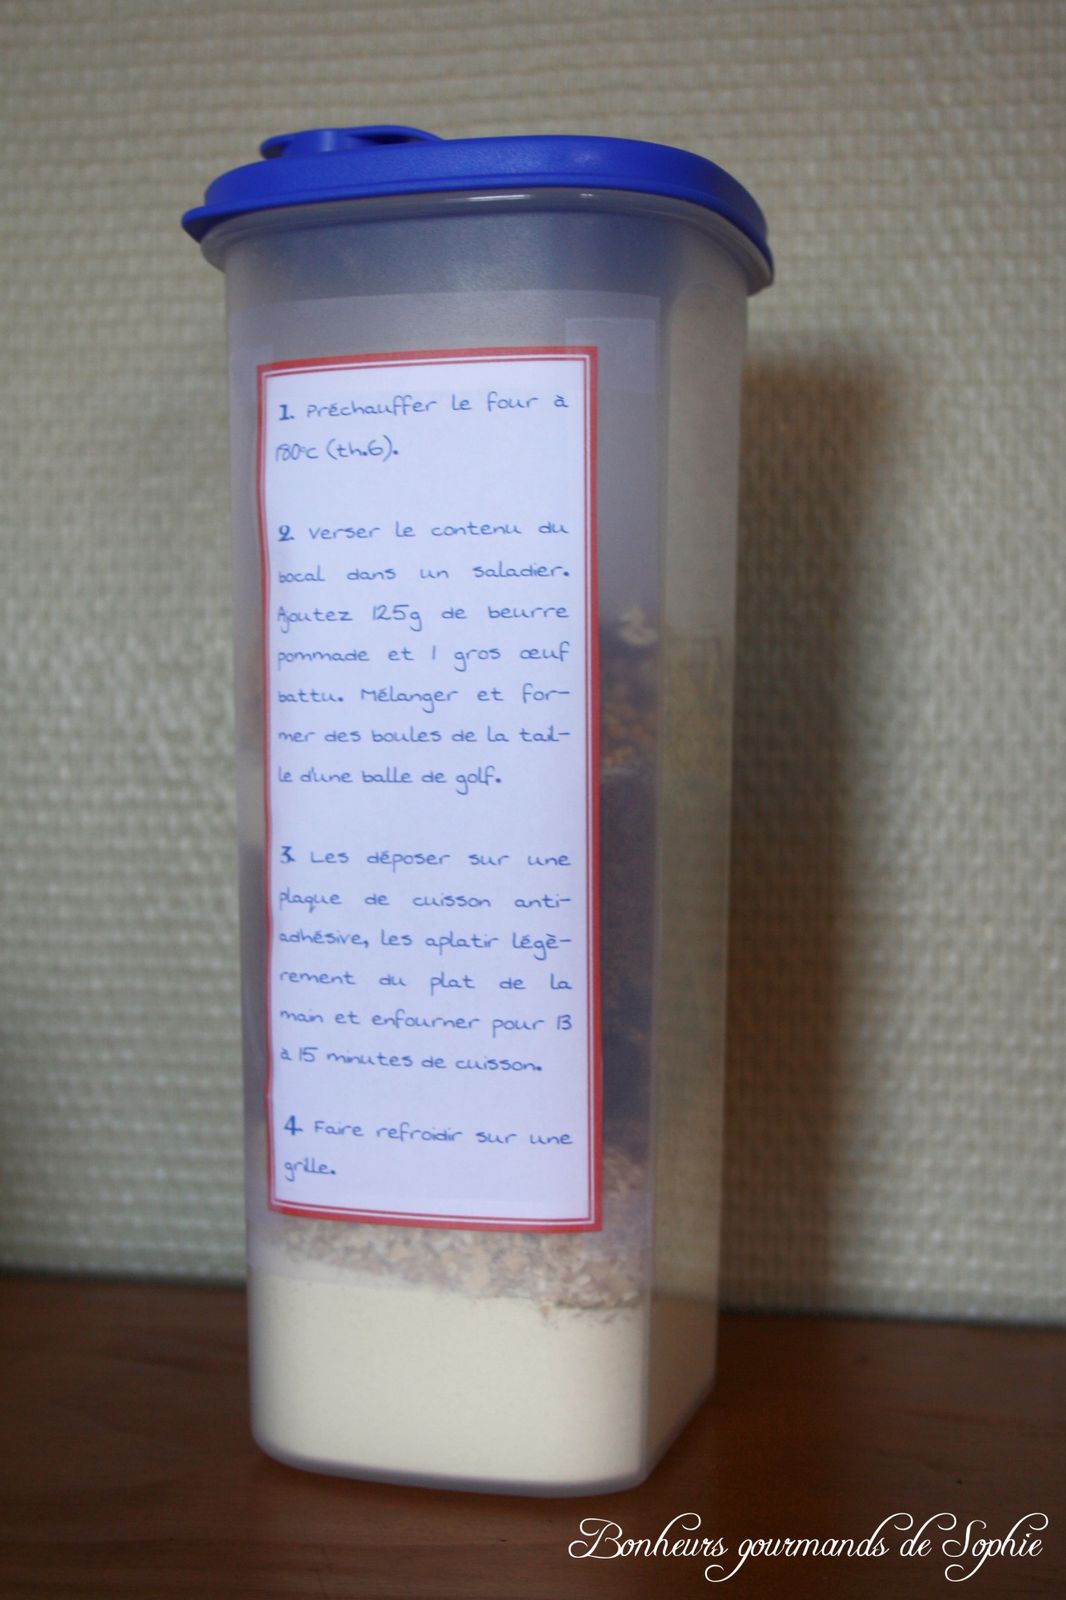 1. Préchauffer le four à
180°c (th.6).
2. Verser le contenu du
bocal dans un saladier.
Ajoutez 125g de beurre
pommade et 1 gros œuf
battu. Mélanger et for-
mer des boules de la tail-
le d'une balle de golf.
3. Les déposer sur une
plaque de cuisson anti-
adhésive, les aplatir légè-
rement du plat de la
main et enfourner pour 13
à 15 minutes de cuisson.
4. Faire refroidir sur une
grille.
Bonheurs gourmands de Sophie